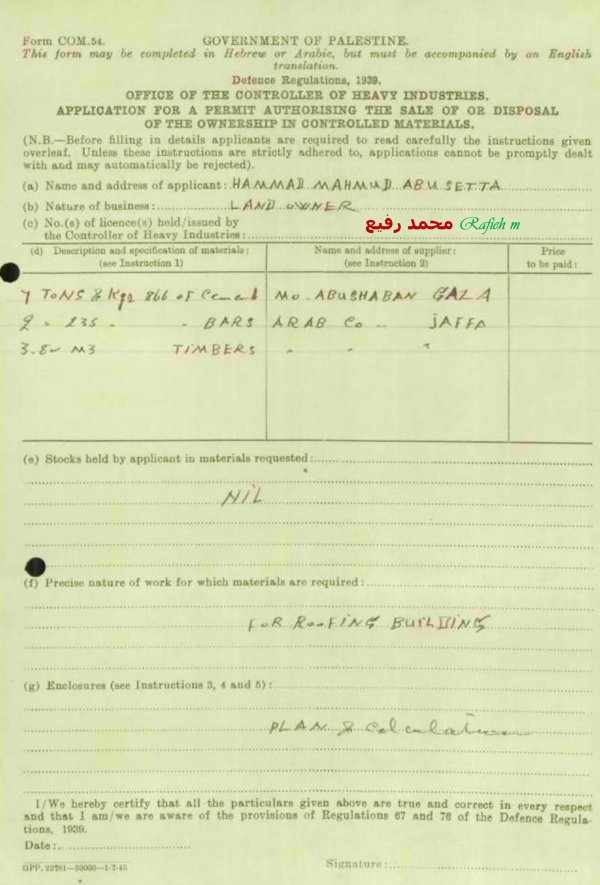 Form COM.54. GOVERNMENT OF PALESTINE.
This form may be completed in Hebrew or Arabic, but must be accompanied by an English
translation.
Defence Regulations, 1939.
OFFICE OF THE CONTROLLER OF HEAVY INDUSTRIES.
APPLICATION FOR A PERMIT AUTHORISING THE SALE OF OR DISPOSAL
OF THE OWNERSHIP IN CONTROLLED MATERIALS.
(N.B.—Before filling in details applicants are required to read carefully the instructions given
overleaf. Unless these instructions are strictly adhered to, applications cannot be promptly dealt
with and may automatically be rejected).
(a) Name and address of applicant: HAMMAD MAHMUD ABUSETTA
(b) Nature of business: LAND OWNER
(c) No.(s) of licence(s) held/issued by
the Controller of Heavy Industries: محمد رفيع Rafieh m
(d) Description and specification of materials: Name and address of supplier: Price
(see Instruction 1) (see Instruction 2) to be paid:
7 TONS & Kgr 866 of Cement Mo. ABUSHABAN GAZA
2 - 235 - - BARS ARAB Co .. JAFFA
3.80 M3 TIMBERS " " "
(e) Stocks held by applicant in materials requested:
NIL
(f) Precise nature of work for which materials are required:
FOR ROOFING BUILDING
(g) Enclosures (see Instructions 3, 4 and 5):
PLAN & Calculation
I/We hereby certify that all the particulars given above are true and correct in every respect
and that I am/we are aware of the provisions of Regulations 67 and 76 of the Defence Regula-
tions, 1939.
Date:
Signature:
GPP. 22781—50000—1-7-45